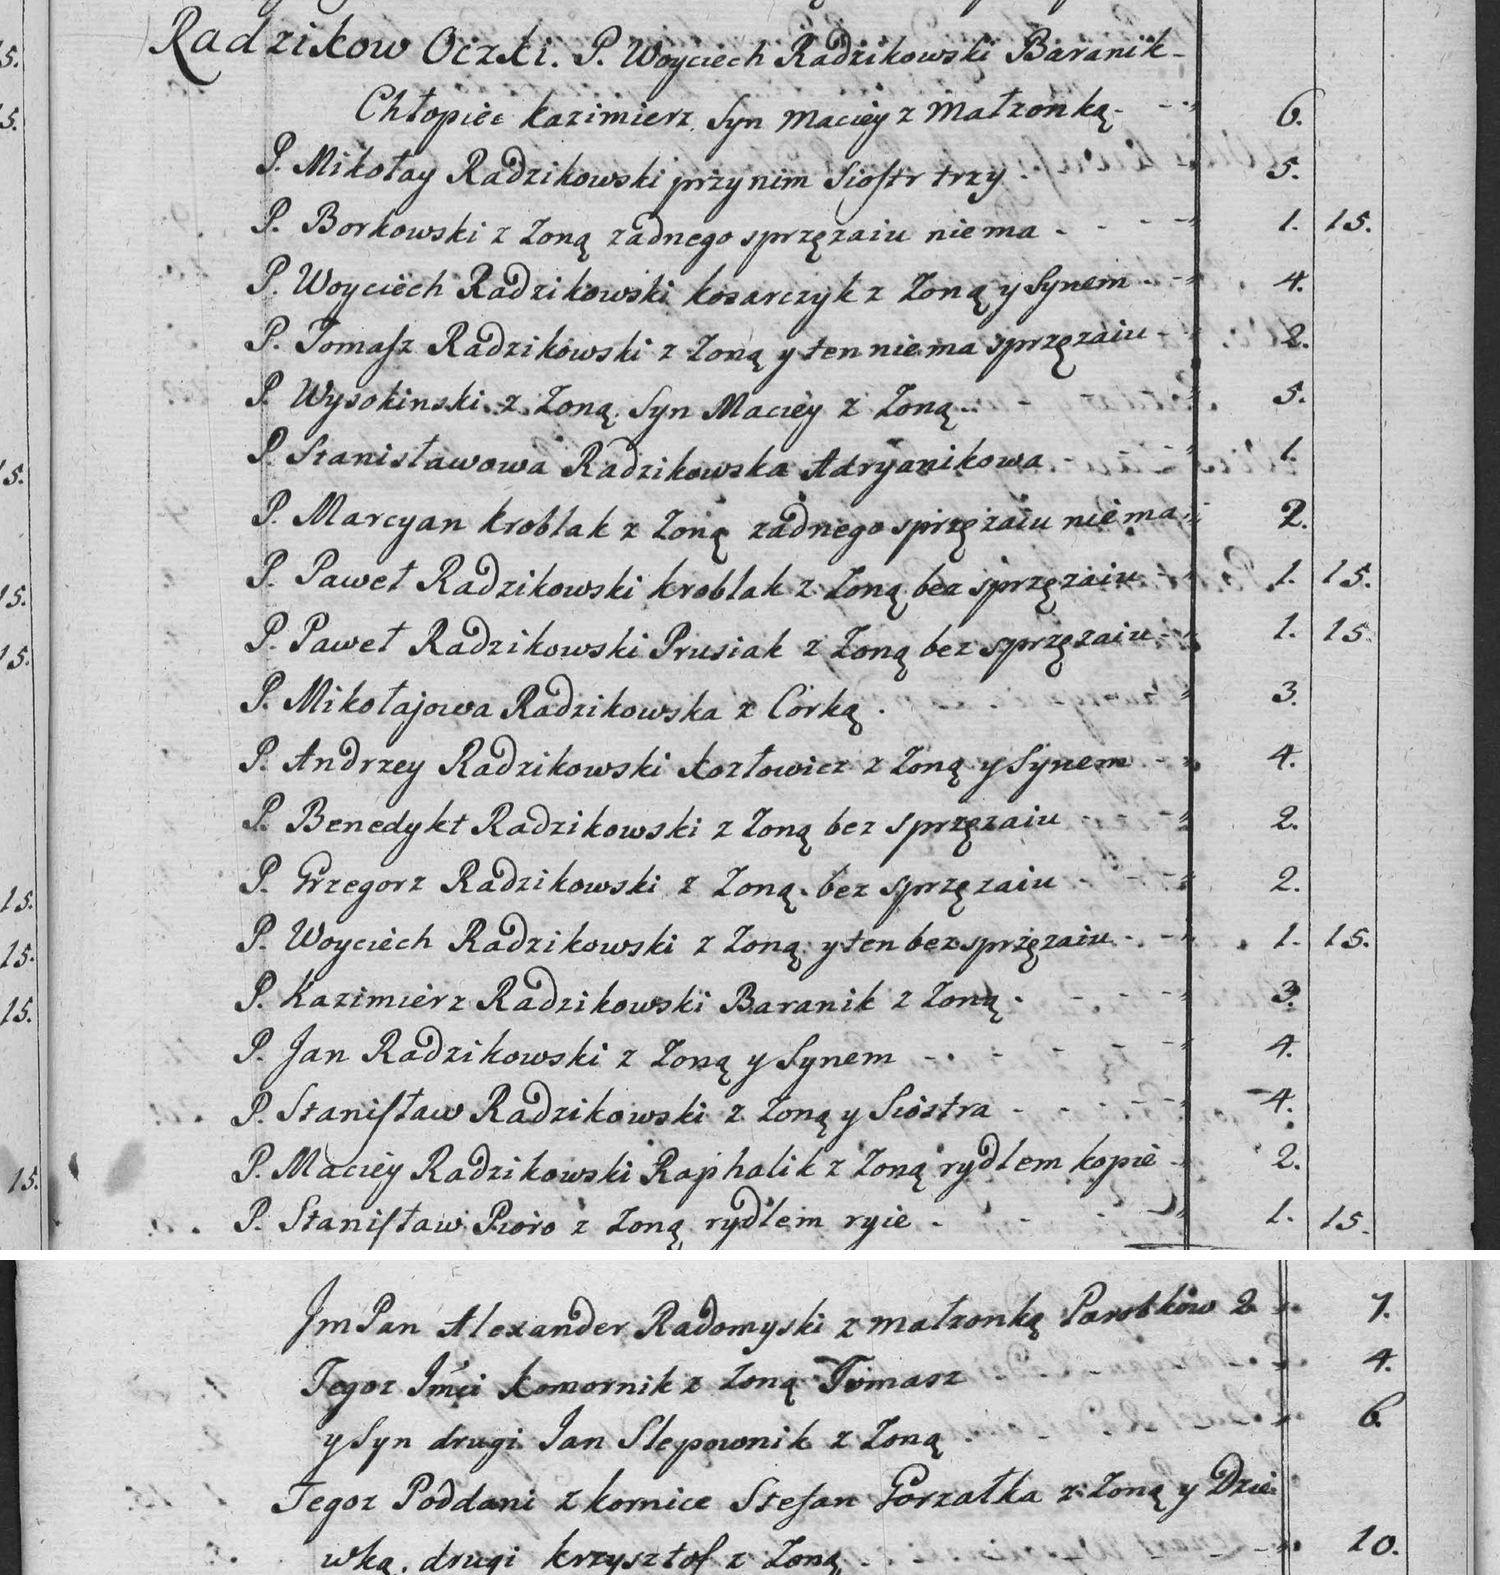 Radzikow Oczki. P. Woyciech Radzikowski Baranik-
Chłopiec Kazimierz Syn Maciey z Małzonką - - 6.
P. Mikołay Radzikowski przy nim Siostr trzy. 5.
P. Borkowski z Zoną zadnego sprzęzaiu niema - - - 1. 15.
P. Woyciech Radzikowski kosarczyk z Zoną y Synem - 4.
P. Tomasz Radzikowski z Zoną y ten niema sprzęzaiu - 2.
P. Wysokinski z Zoną Syn Maciey z Zoną.. 5.
P. Stanisławowa Radzikowska Adryanikowa 1.
P. Marcyan kroblak z Zoną zadnego sprzęzaiu niema 2.
P. Paweł Radzikowski kroblak z Zoną bez sprzęzaiu - 1. 15.
P. Paweł Radzikowski Prusiak z Zoną bez sprzęzaiu - 1. 15.
P. Mikołajowa Radzikowska z Corką. 3.
P. Andrzey Radzikowski Kozłowicz z Zoną y Synem - 4.
P. Benedykt Radzikowski z Zoną bez sprzęzaiu - 2.
P. Grzegorz Radzikowski z Zoną bez sprzęzaiu - - - 2.
P. Woyciech Radzikowski z Zoną y ten bez sprzęzaiu - 1. 15.
P. Kazimierz Radzikowski Baranik z Zoną. - - - 3.
P. Jan Radzikowski z Zoną y Synem - - - - 4.
P. Stanisław Radzikowski z Zoną y Siostra - - - 4.
P. Maciey Radzikowski Raphalik z Zoną rydlem kopie - 2.
P. Stanisław Pioro z Zoną rydlem ryie - - - 1. 15.
Jm Pan Alexander Radomyski z małzonką Parobków 2 7.
Tegoz Jmci Komornik z Zoną Tomasz 4.
y Syn drugi Jan Slepownik z Zoną 6.
Tegoz Poddani z kornice Stefan Gorzałka z Zoną y Dzie-
wką. drugi Krzysztof z Zoną 10.